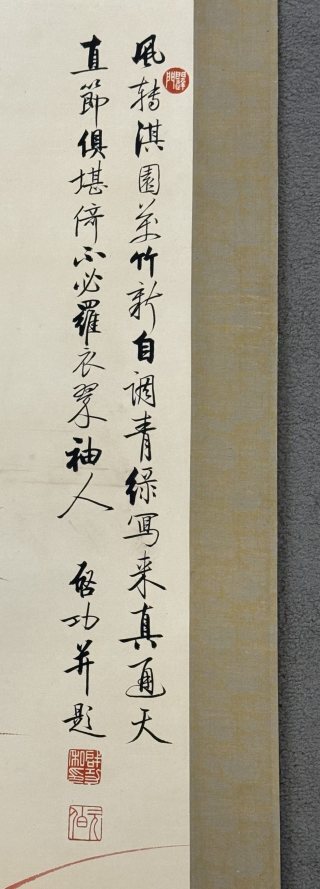 風轉淇園萬竹新自調青綠寫來真通天
直節俱堪倚不必羅衣翠袖人
啓功并題